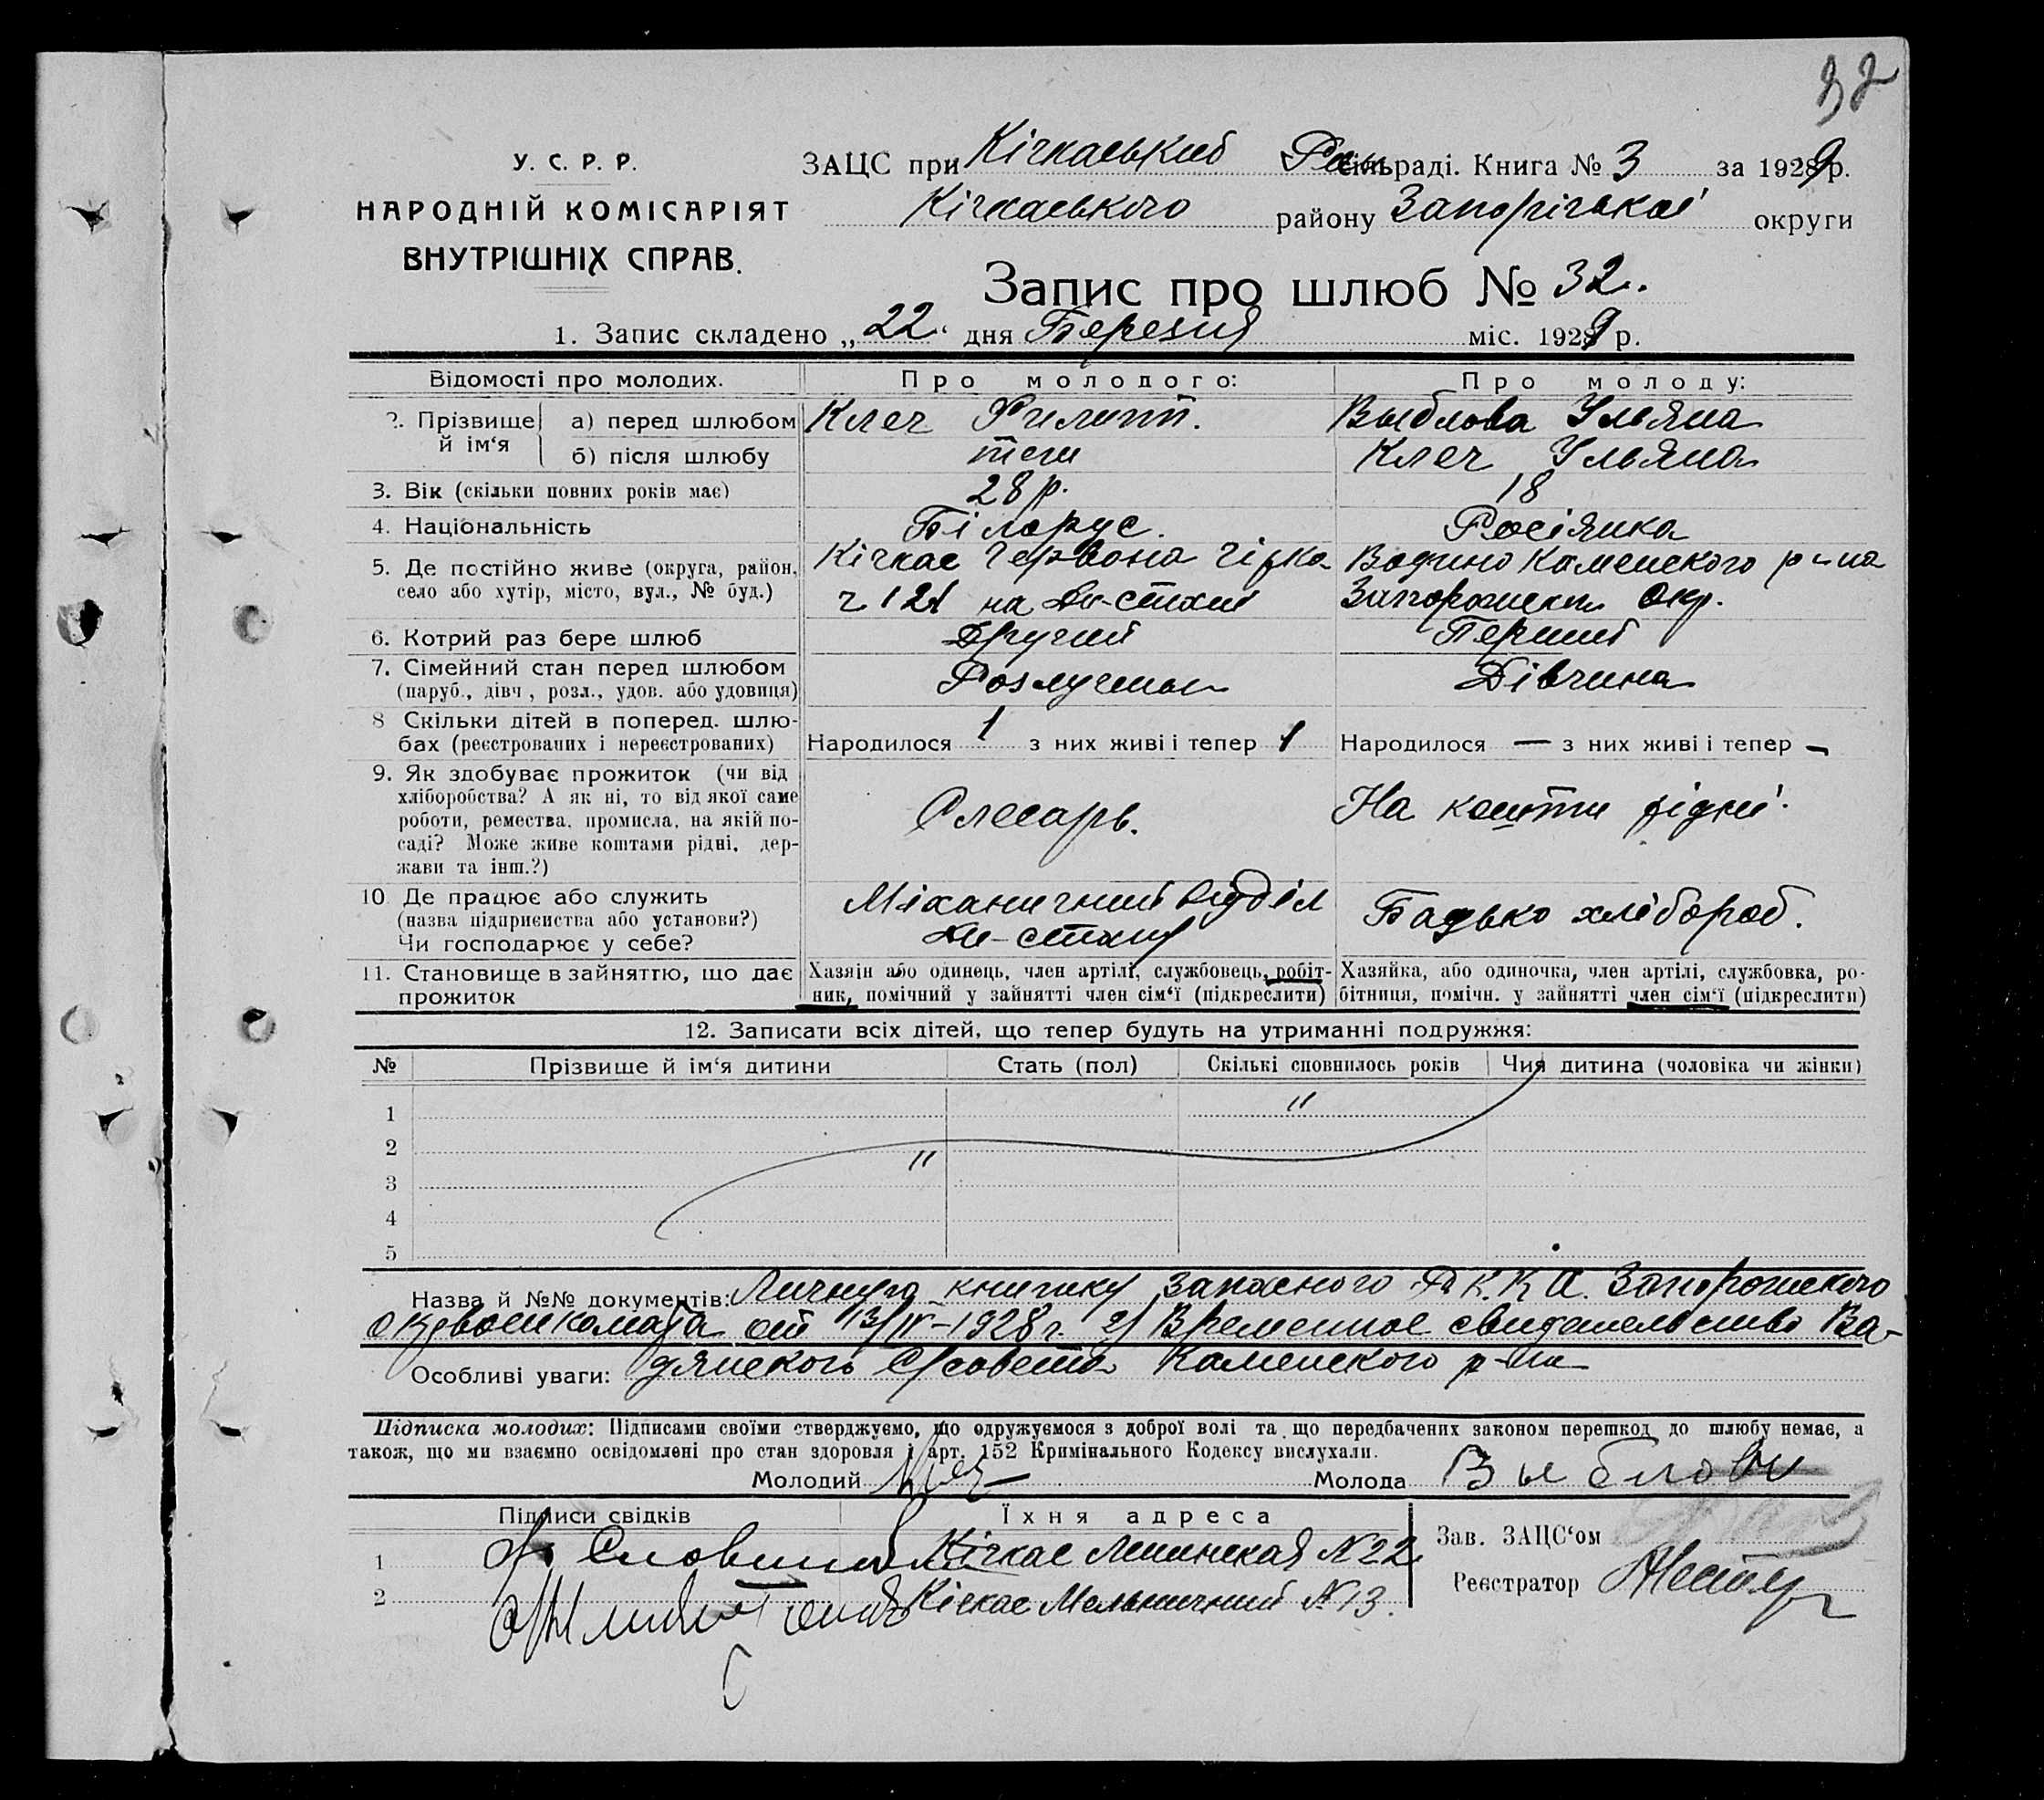 32
У. С. Р. Р.
НАРОДНІЙ КОМІСАРІЯТ
ВНУТРІШНІХ СПРАВ.
ЗАЦС при Кічкаський Рай сільраді. Книга № 3 за 1929 р.
Кічкаського району Запорізької округи
Запис про шлюб № 32.
1. Запис складено „22“ дня Березня міс. 1929 р.
Відомості про молодих. Про молодого: Про молоду:
2. Прізвище й ім‘я а) перед шлюбом Клеч Филипп. Выблова Ульяна
б) після шлюбу теж Клеч Ульяна
3. Вік (скільки повних років має) 28 р. 18
4. Національність Білорус. Росіянка
5. Де постійно живе (округа, район, Кічкас Червона гірка Водино Каменского р-на
село або хутір, місто, вул., № буд.) на Дн-стані Запорожском Окр.
6. Котрий раз бере шлюб Другий Перший
7. Сімейний стан перед шлюбом
(паруб., дівч., розл., удов. або удовиця) Розлучены Дівчина
8 Скільки дітей в поперед. шлю-
бах (реєстрованих і нереєстрованих) Народилося 1 з них живі і тепер 1 Народилося — з них живі і тепер -
9. Як здобуває прожиток (чи від
хліборобства? А як ні, то від якої саме
роботи, ремества, промисла, на якій по- Слесарь. На кошти рідні.
саді? Може живе коштами рідні, дер-
жави та інш.?)
10 Де працює або служить Міханичний відділ
(назва підприємства або установи?) Дн-стану Бадько хлібороб.
Чи господарює у себе?
11. Становище в зайняттю, що дає Хазяін або одинець, член артілі, службовець, робіт- Хазяйка, або одиночка, член артілі, службовка, ро-
прожиток ник, помічний у зайнятті член сім‘ї (підкреслити) бітниця, помічн. у зайнятті член сім‘ї (підкреслити)
12. Записати всіх дітей, що тепер будуть на утриманні подружжя:
№ Прізвище й ім‘я дитини Стать (пол) Скількі сповнилось років Чия дитина (чоловіка чи жінки)
1 "
2 "
3
4
5
Назва й №№ документів: Личную книжку запасного Р.К.К.А. Запорожского
Окрвоенкомата от 13/IV-1928 г. 2/ Временное свидетельство Ва-
Особливі уваги: дянского С/совета Каменского р-на
Підписка молодих: Підписами своїми стверджуємо, що одружуємося з доброї волі та що передбачених законом перешкод до шлюбу немає, а
також, що ми взаємно освідомлені про стан здоровля і арт. 152 Кримінального Кодексу вислухали.
Молодий Клеч Молода Выблова
Підписи свідків Їхня адреса
1 Кічкас Ленинская N 22. Зав. ЗАЦС‘ом
2 Кічкас Мельничний N 13. Реєстратор